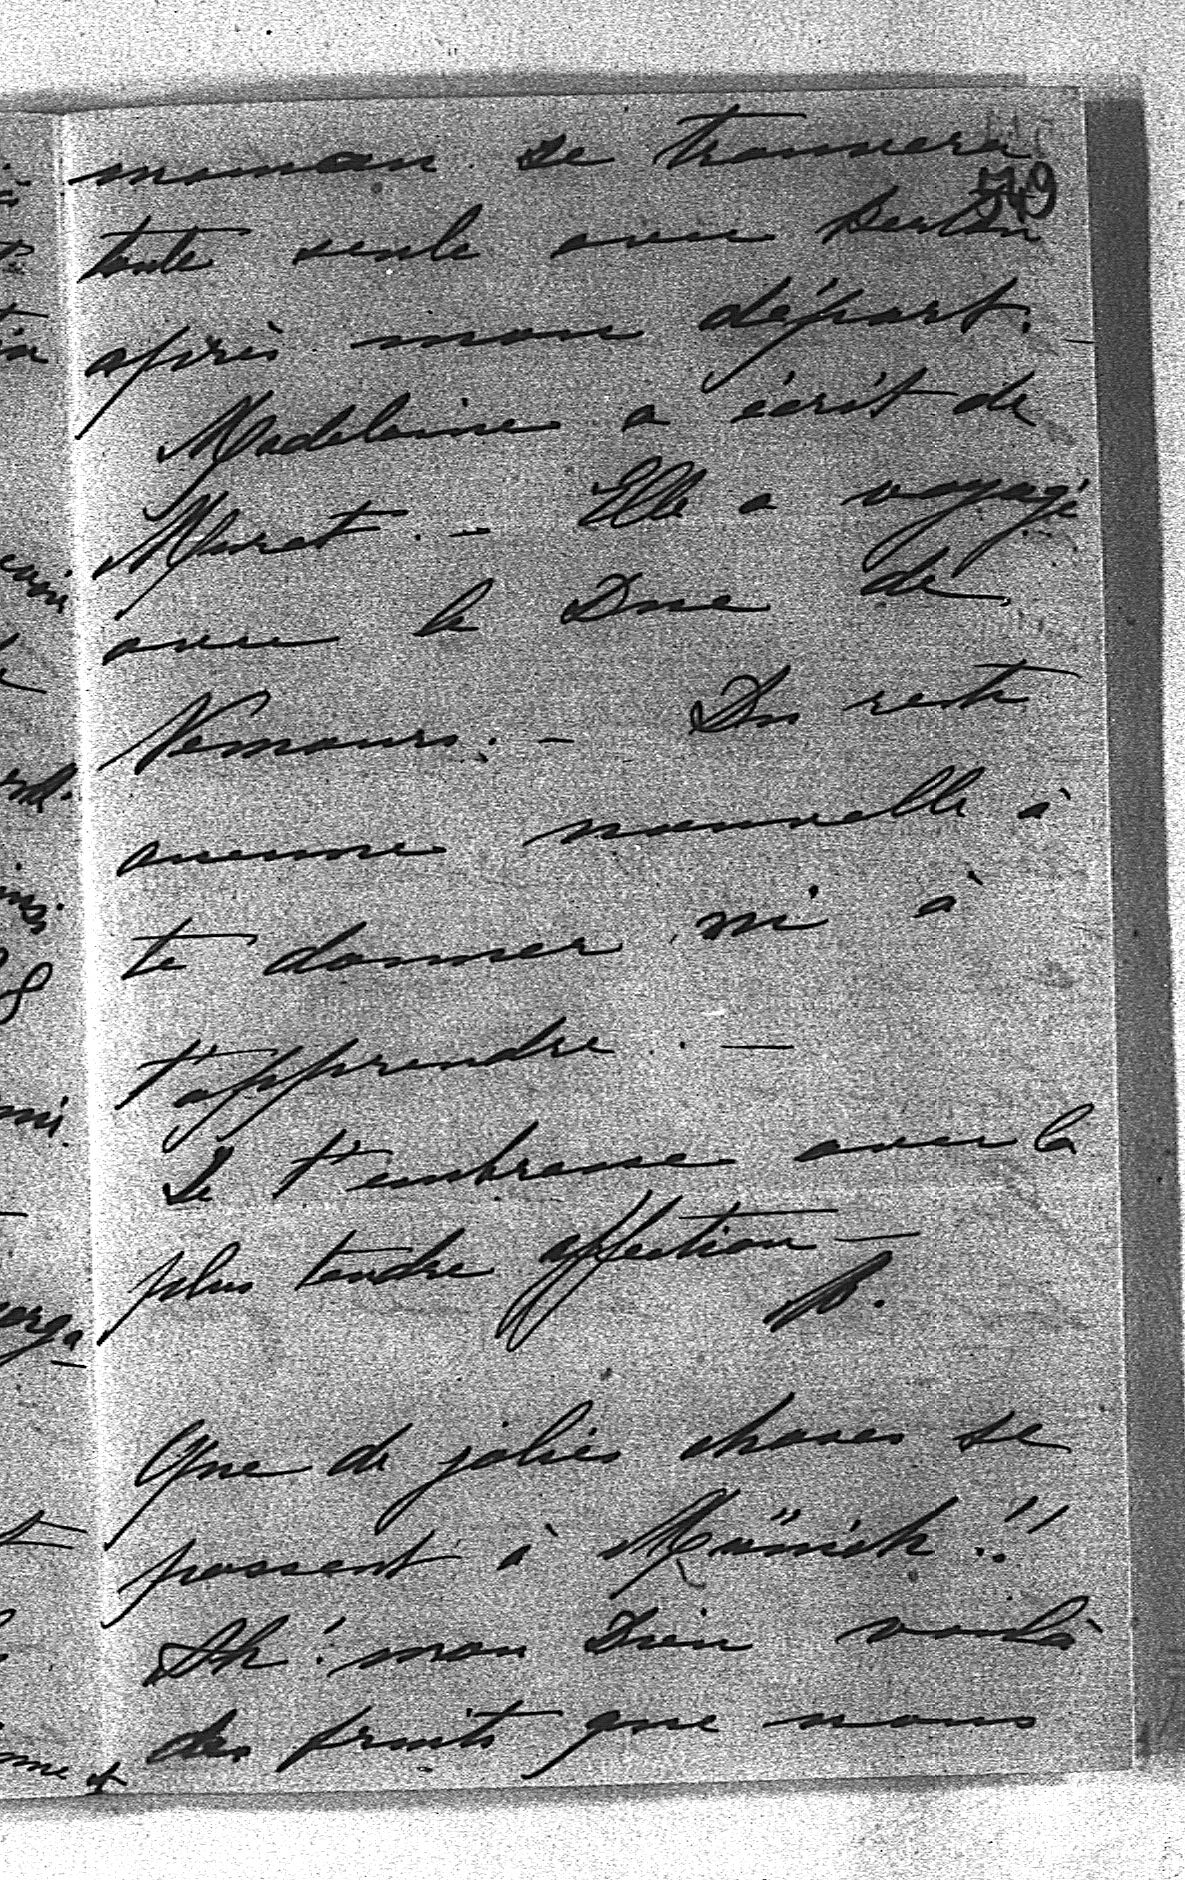 549
maman se trouvera
toute seule avec
après mon départ.
Madeleine a écrit de
Muret. — Elle a voyagé
avec le Duc de
Nemours. — Du reste
aucune nouvelle à
te donner ni à
t'apprendre. —
Je t'embrasse avec la
plus tendre affection —
B.
Que de jolies choses se
passent à Münich!!
Ah! mon Dieu voilà
des fruits que nous